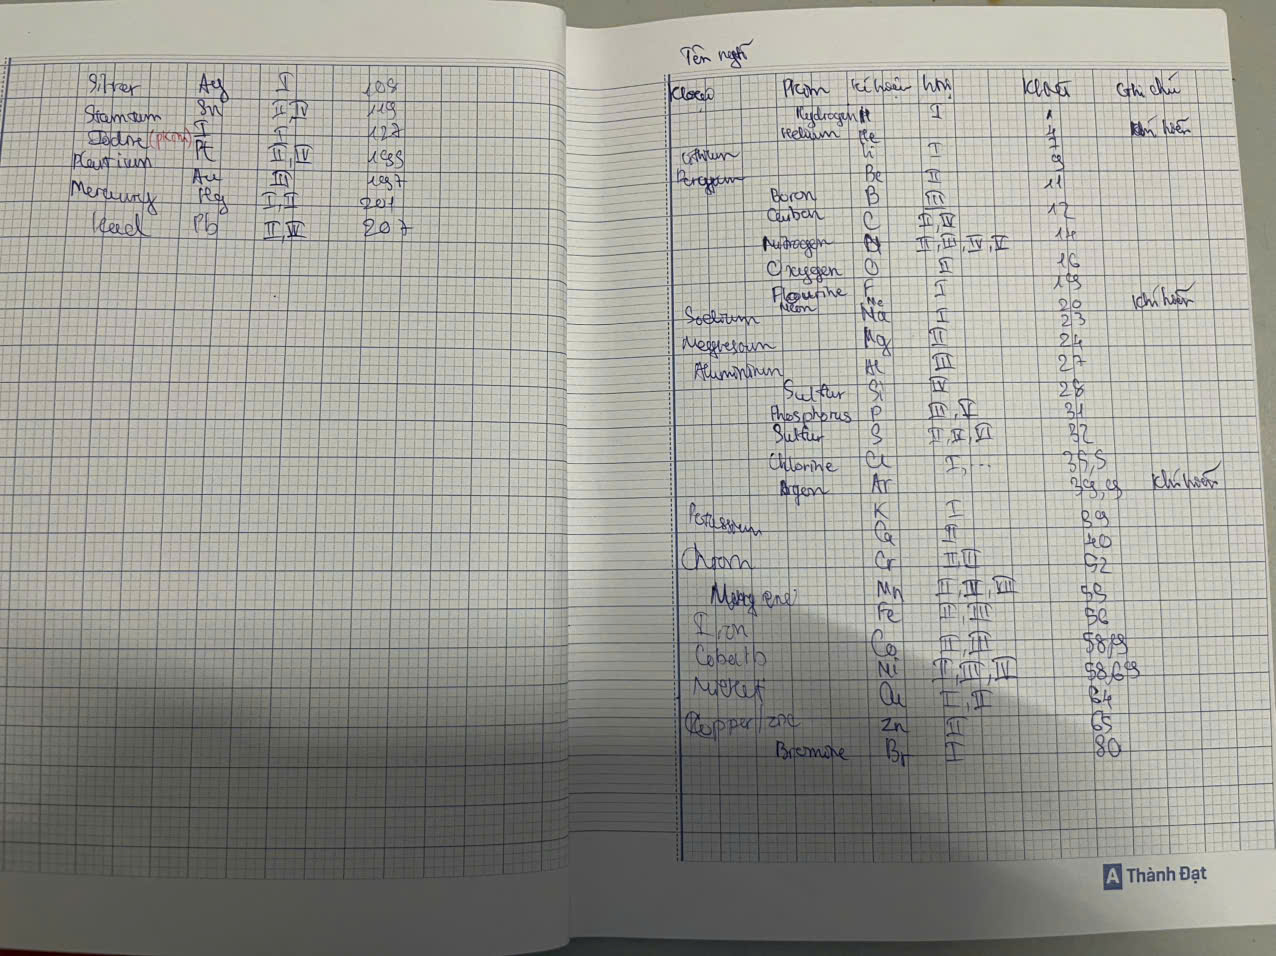 Silver Ag I 108
Stannum Sn II, IV 119
Iodine (pkim) I I 127
Platium Pt II, IV 195
Au III 197
Mercury Hg I, II 201
Lead Pb II, IV 207
Tên ngtố
Kloại Pkim Kí hiệu htrị Klntử Ghi chú
Hydrogen H I 1
Helium He 4 Khí hiếm
Lithium Li I 7
Be II 9
Boron B III 11
Canbon C II, IV 12
Nitrogen N II, III, IV, V 14
Oxygen O II 16
Flourine F I 19
Neon Ne 20 Khí hiếm
Sodium Na I 23
Magnesium Mg II 24
Aluminium Al III 27
Sulfur Si IV 28
Phosphorus P III, V 31
Sulfur S II, IV, VI 32
Chlorine Cl I, ... 35,5
Argon Ar 39,9 Khí hiếm
Potassium K I 39
Ca II 40
Chrom Cr II, III 52
Mn II, IV, VII 55
Iron Fe II, III 56
Cobalt Co II, III 58,9
Nickel Ni II, III, IV 58,69
Copper Cu I, II 64
Zn II 65
Bromine Br I 80
A Thành Đạt